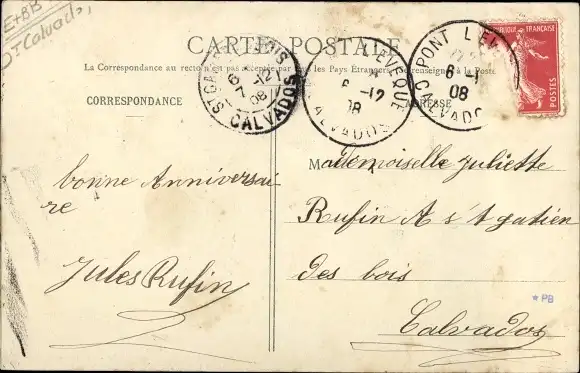 E+BB
DT Calvados,
CARTE POSTALE
La Correspondance au recto n'est pas acceptée par tous les Pays Étrangers. Se renseigner à la Poste.
CORRESPONDANCE
ADRESSE
ST GATIEN DES BOIS
6-12
7
08
CALVADOS
PONT L'EVEQUE
6-12
08
CALVADOS
PONT L'EV
6-1
08
CALVADO
REPUBLIQUE FRANÇAISE
POSTES
bonne Anniversai
re
Jules Rufin
Mademoiselle Juliette
Rufin A s't gatien
des bois
Calvados
* PB